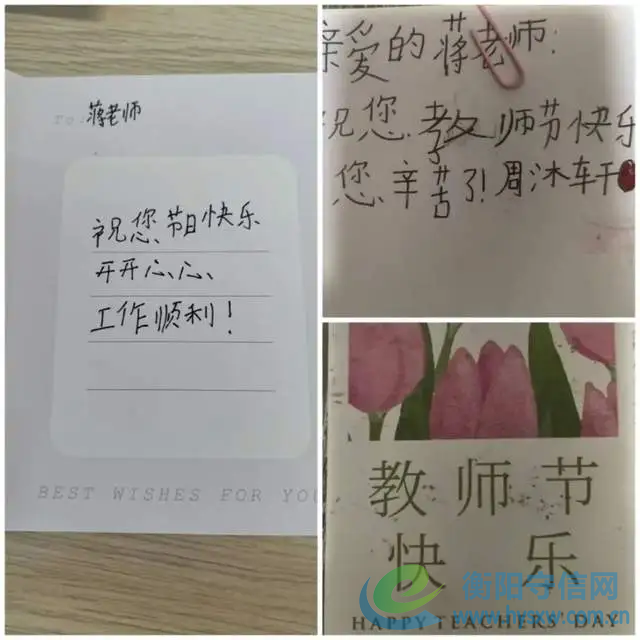 To: 蒋老师
祝您节日快乐
开开心心
工作顺利!
BEST WISHES FOR YOU
亲爱的蒋老师:
祝您教师节快乐
您辛苦了!周沐轩
教师节
快乐
HAPPY TEACHERS' DAY
衡阳守信网
www.hysxw.com.cn